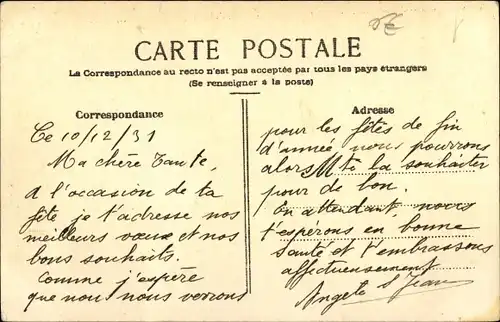 CARTE POSTALE
La Correspondance au recto n'est pas acceptée par tous les pays étrangers
(Se renseigner à la poste)
Correspondance
Ce 10/12/31
Ma chère Tante,
A l'occasion de ta
fête je t'adresse nos
meilleurs vœux et nos
bons souhaits.
Comme j'espère
que nous nous verrons
Adresse
pour les fêtes de fin
d'année nous pourrons
alors te la souhaiter
pour de bon.
En attendant, nous
t'espérons en bonne
santé et t'embrassons
affectueusement
Angèle Jean